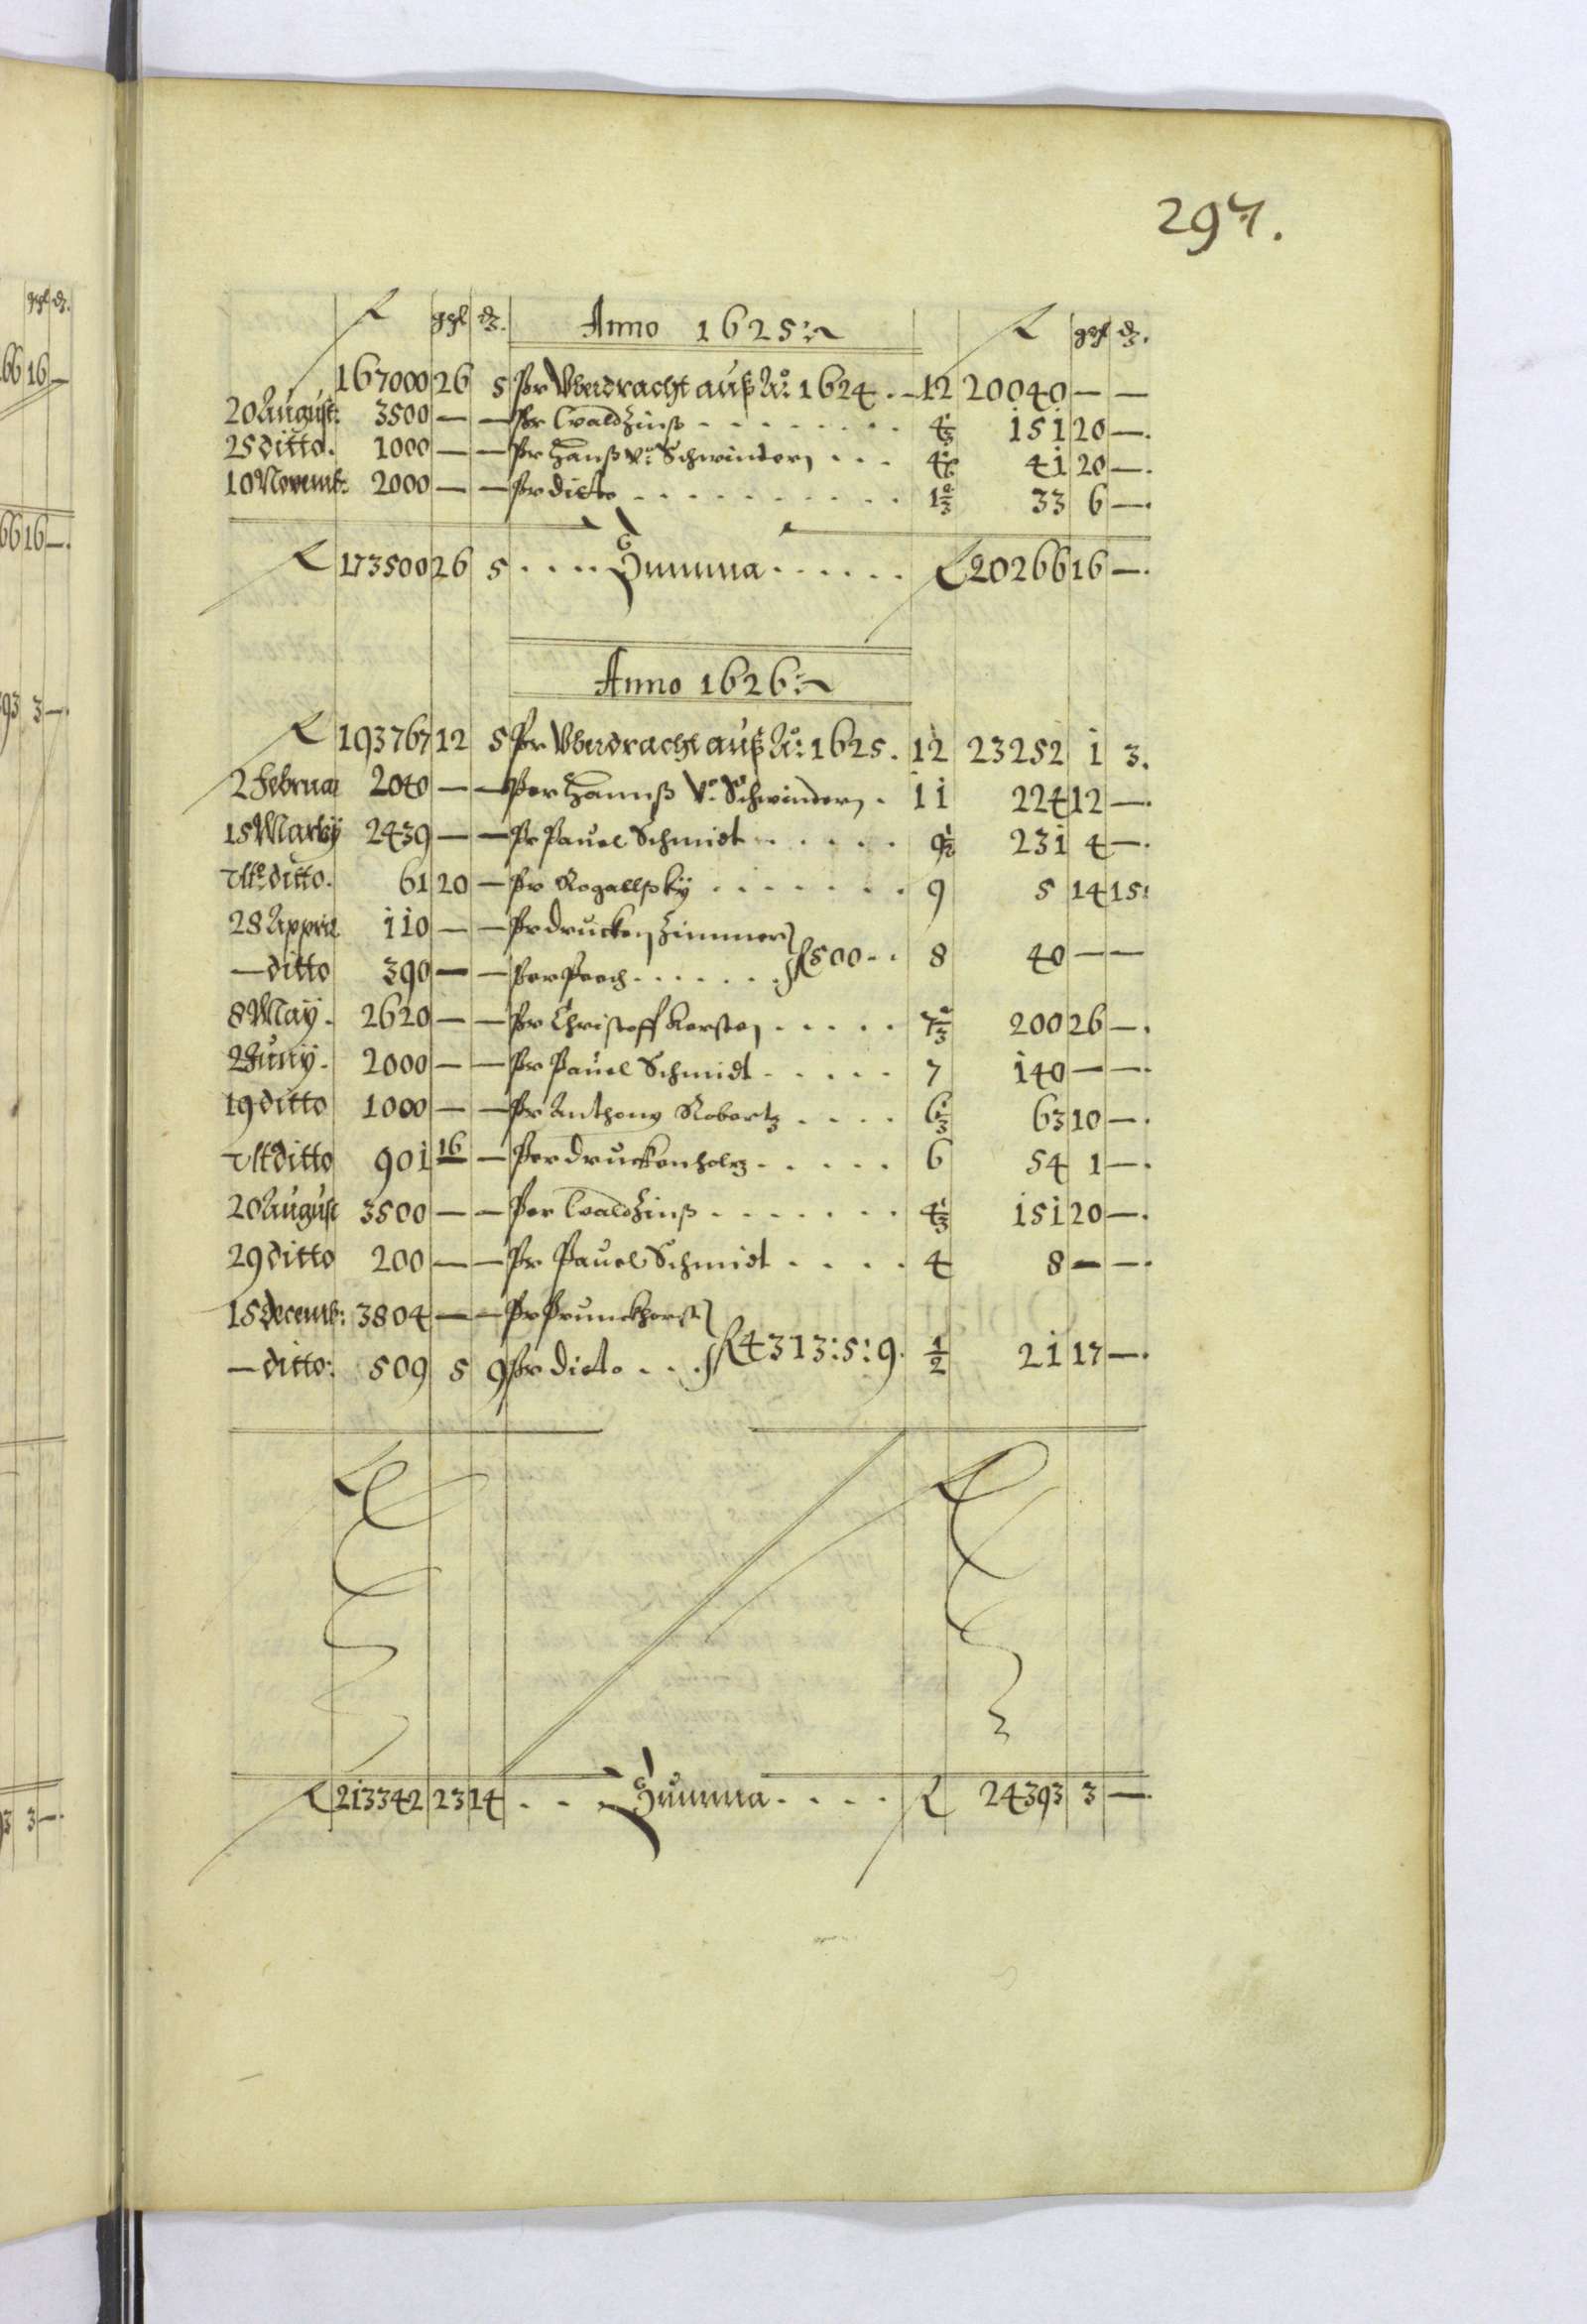 297.
R ggl ₰. Anno 1625 R ggl ₰.
167000 26 5 Pr Vberdracht auß Ao: 1624. 12 20040 — —
20 August: 3500 — — Pr Waldzinß 4⅓ 151 20 —.
25 ditto. 1000 — — Pr Hanß Vo: Schwindern 4 1/6 41 20 —.
10 Novemb: 2000 — — Pr dicto 1⅔ 33 6 —.
R 173500 26 5 Summa R 20266 16 —.
Anno 1626
R 193767 12 5 Pr Vberdracht auß Ao: 1625. 12 23252 1 3.
2 Februar 2040 — — Per Hannß Vo: Schwindern 11 224 12 —.
15 Marty 2439 — — Pr Pauel Schmidt 9½ 231 4 —.
Vlto ditto. 61 20 — Pr Rogallsky 9 5 14 15
28 Appril 110 — — Pr drucken Zimmer
— ditto 390 — — Per Pech R 500 8 40 — —
8 May. 2620 — — Pr Christoff Kersten 7⅔ 200 26 —.
2 Juny. 2000 — — Pr Pauel Schmidt 7 140 — —.
19 ditto 1000 — — Pr Anthony Robertz 6⅓ 63 10 —.
Vlt ditto 901 16 — Per druckenholtz 6 54 1 —.
20 August 3500 — — Per Waldzinß 4⅓ 151 20 —.
29 ditto 200 — — Pr Pauel Schmidt 4 8 — —.
15 Decemb: 3804 — — Pr Prunckhorst
— ditto: 509 5 9 Pr dicto R 4313:5:9. ½ 21 17 —.
R 213342 23 14 Summa R 24393 3 —.